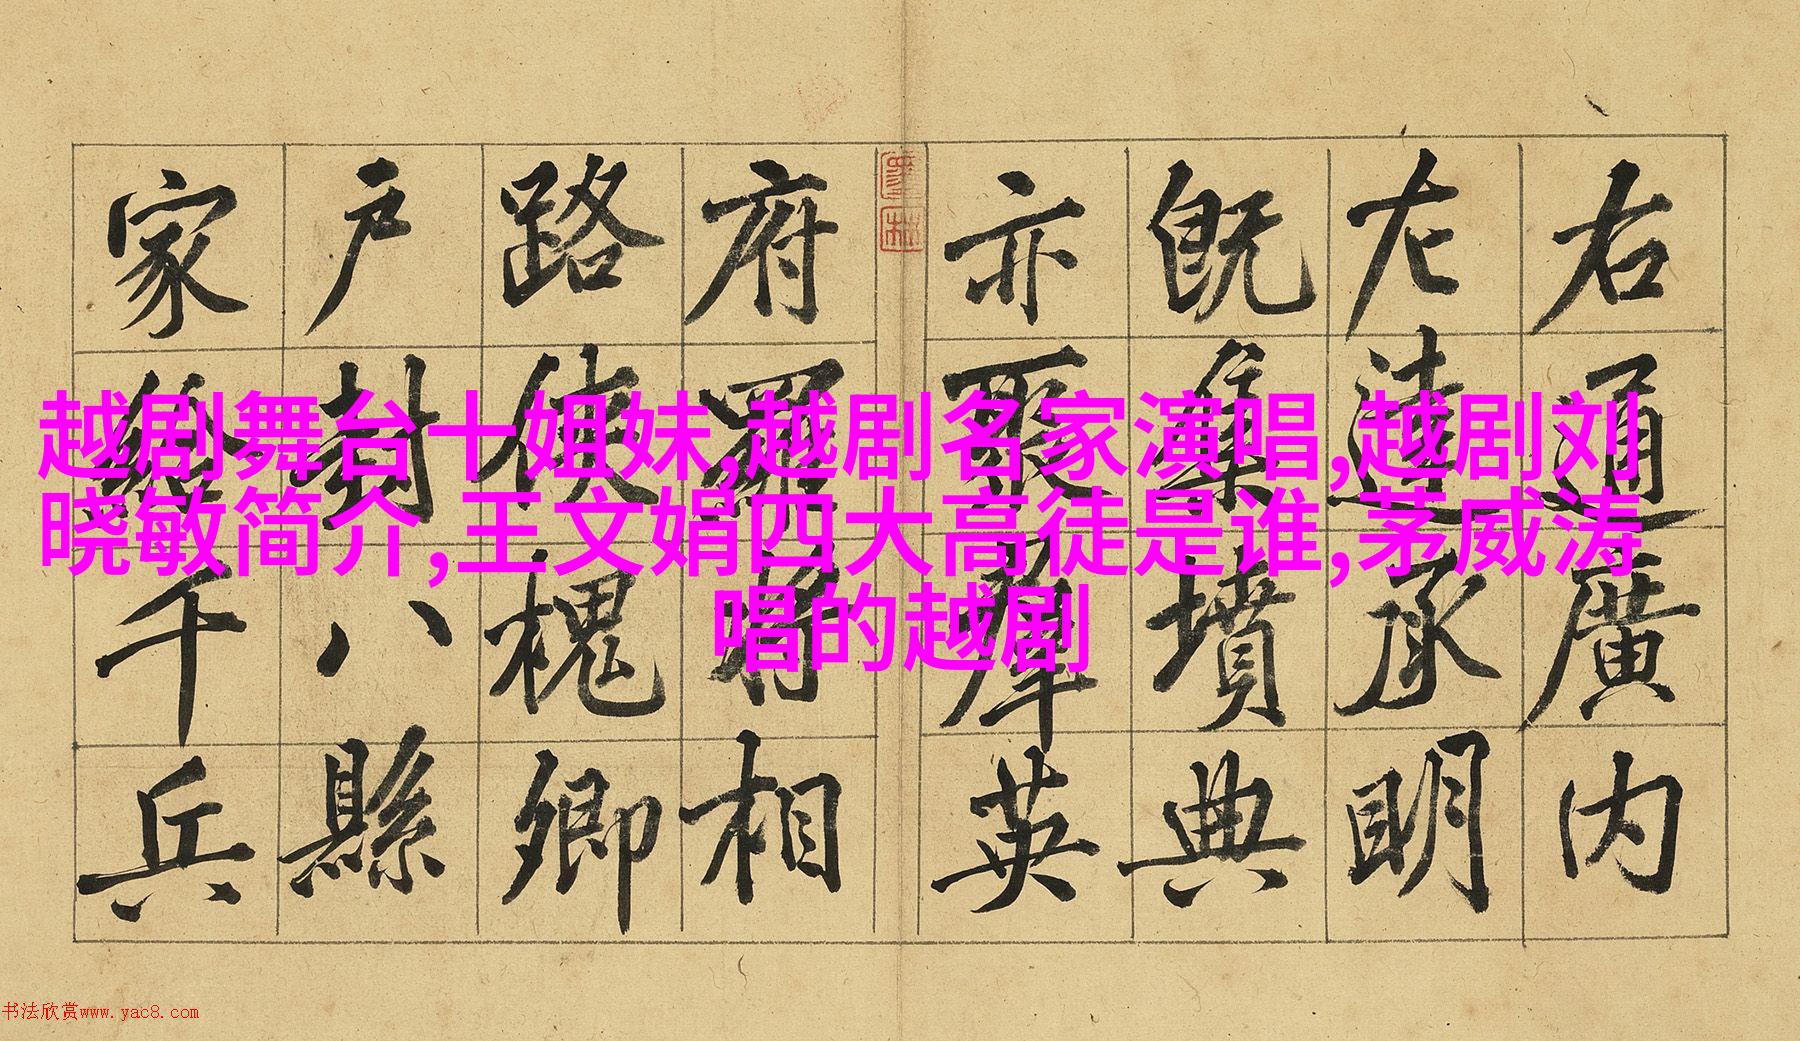 右通廣内
左達承明
既集墳典
亦聚羣英
府羅將相
路俠槐卿
户封八縣
家給千兵
越剧舞台十姐妹,越剧名家演唱,越剧刘
晓敏简介,王文娟四大高徒是谁,茅威涛
唱的越剧
书法欣赏www.yac8.com